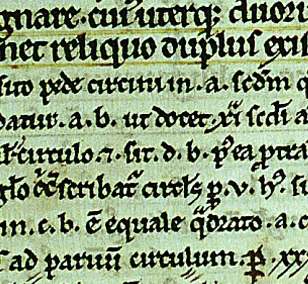 gnare. cui᷒ uterq; duoru
net reliquo duplus exi
sito pede circini in .a. scd̄m q
datur .a.b. ut docet .xi. scdi a
circulo ⁊ sit .d.b. p̄ea
scribat̄ circl̄s p̱ .v. hͥ. si
in .c.b. ē equale q̄drato .a.c
ad paruū circulum. p̱ .xxx